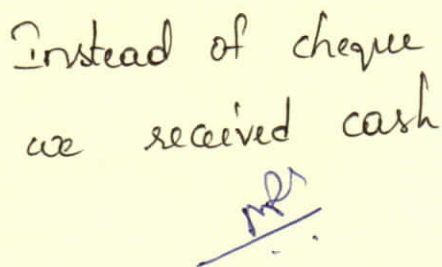 Instead of cheque
we received cash